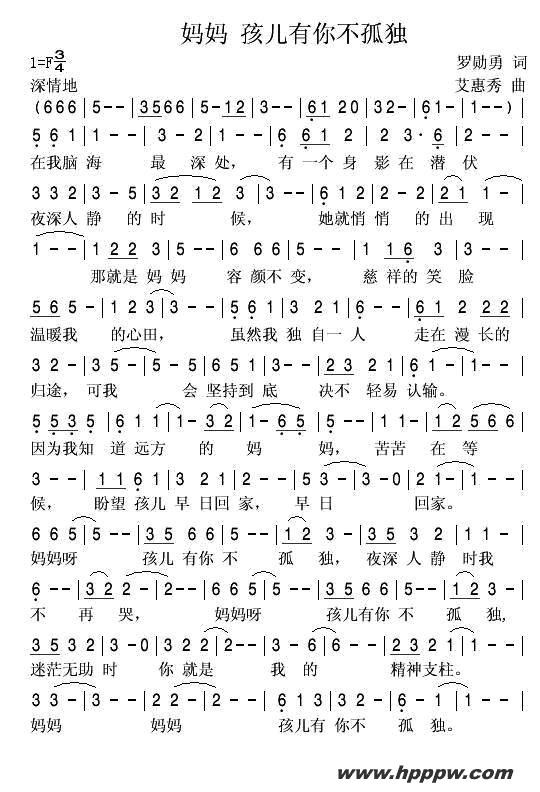 妈妈 孩儿有你不孤独
1=F 3/4
罗勋勇 词
深情地
艾惠秀 曲
(666|5--|3566|5-12|3--|610|32-|61-|1--)|
561|3-5|1--|6 61|23·6|2--|
在我脑 海 最 深 处, 有 一个 身 影 在 潜 伏
332|3-5|32 12|3-3|3--|332|2-2|21 1|1--|
夜深人 静 的 时 候, 她就悄 悄 的 出 现
1--|122|3-5|5--|635|2--|11 6|3--|
那就是 妈 妈 容 颜不 变, 慈 祥的 笑 脸
565|5-1|23 3|3--|561|3-5|1-6|61 2|22 2|
温暖我 的心田, 虽然我 独 自一 人 走在 漫 长的
32-|3-5|5-5|651|3--|23 2|21|61-|1--|
归途, 可我 会 坚持到 底 决不 轻易 认输。
5535|611|1-32|1-65|5--|1-1|12566|
因为我知 道 远方 的 妈 妈, 苦苦 在 等
3--|1161|322|1-2|53-|3-0|21-|1--|
候, 盼望 孩儿 早 日回 家, 早 日 回家。
665|5--|356|65-|5--|12 3|32-|11-|
妈妈呀 孩儿 有你 不 孤 独, 夜深 人 静 时我
6--|32 2|2-2|665|5--|3566|5-|123|3--|
不 再 哭, 妈妈呀 孩儿有你 不 孤 独,
3532|3-0|322|2-3|3-6|6--|2321|1--|
迷茫无助 时 你 就是 我 的 精神支柱。
33-|3--|22-|2--|613|32-|5-6|1--|
妈妈 妈妈 孩儿有 你不 孤 独。
www.hpppw.com